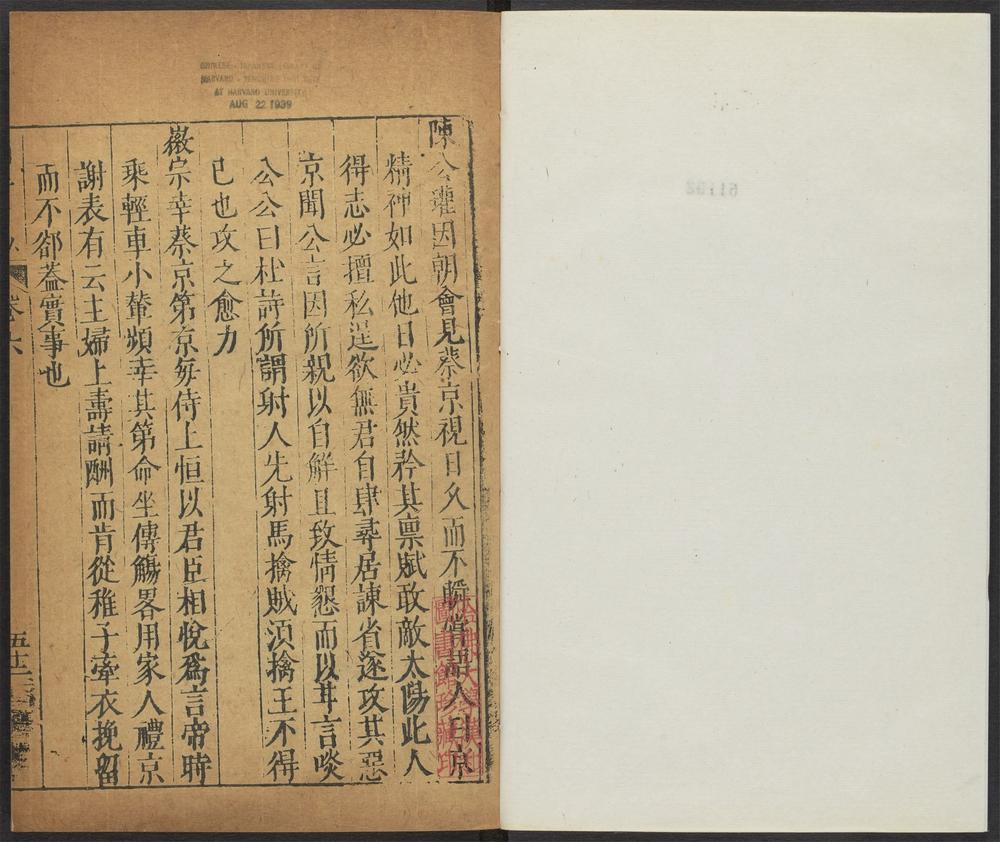 陳公瓘因朝會見蔡京視日久而不瞬嘗語人曰京
精神如此他日必貴然矜其禀賦敢敵太陽此人
得志必擅私逞欲無君自肆尋居諫省遂攻其惡
京聞公言因所親以自解且致情懇而以甘言啖
公公曰杜詩所謂射人先射馬擒賊須擒王不得
已也攻之愈力
徽宗幸蔡京第京每侍上恒以君臣相悅爲言帝時
乘輕車小輦頻幸其第命坐傳觴畧用家人禮京
謝表有云主婦上壽請酬而肯從稚子牽衣挽留
而不卻蓋實事也
卷六
AT HARVARD UNIVERSITY
AUG 22 1939